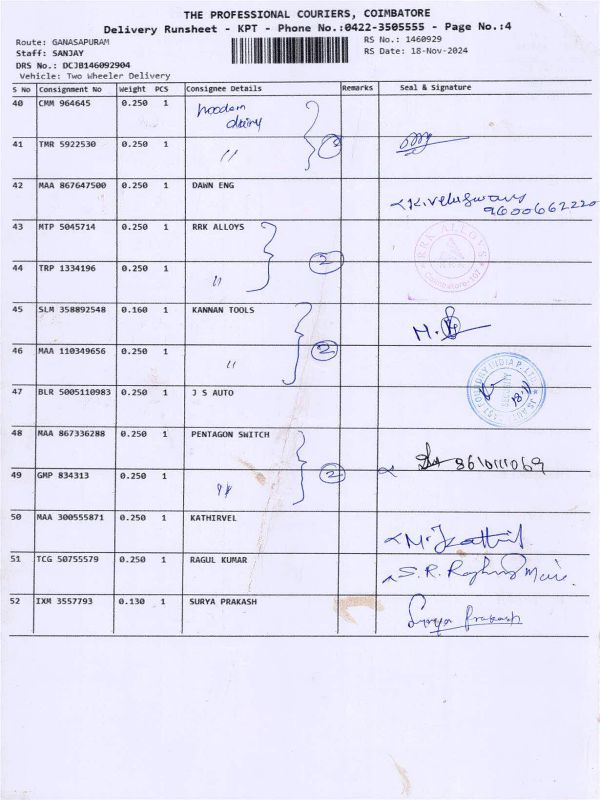 THE PROFESSIONAL COURIERS, COIMBATORE
Delivery Runsheet - KPT - Phone No.:0422-3505555 - Page No.:4
Route: GANASAPURAM RS No.: 1460929
Staff: SANJAY RS Date: 18-Nov-2024
DRS No.: DCJB146092904
Vehicle: Two Wheeler Delivery
S No Consignment No Weight PCS Consignee Details Remarks Seal & Signature
40 CMM 964645 0.250 1
dairy
41 TMR 5922530 0.250 1 〃
42 MAA 867647500 0.250 1 DAWN ENG
9600662220
43 MTP 5045714 0.250 1 RRK ALLOYS 2 RRK ALLOYS
Coimbatore-107
44 TRP 1334196 0.250 1 〃
45 SLM 358892548 0.160 1 KANNAN TOOLS
46 MAA 110349656 0.250 1 〃 2
47 BLR 5005110983 0.250 1 J S AUTO
48 MAA 867336288 0.250 1 PENTAGON SWITCH
49 GMP 834313 0.250 1 〃 2
50 MAA 300555871 0.250 1 KATHIRVEL
51 TCG 50755579 0.250 1 RAGUL KUMAR
52 IXM 3557793 0.130 1 SURYA PRAKASH Surya Prakash